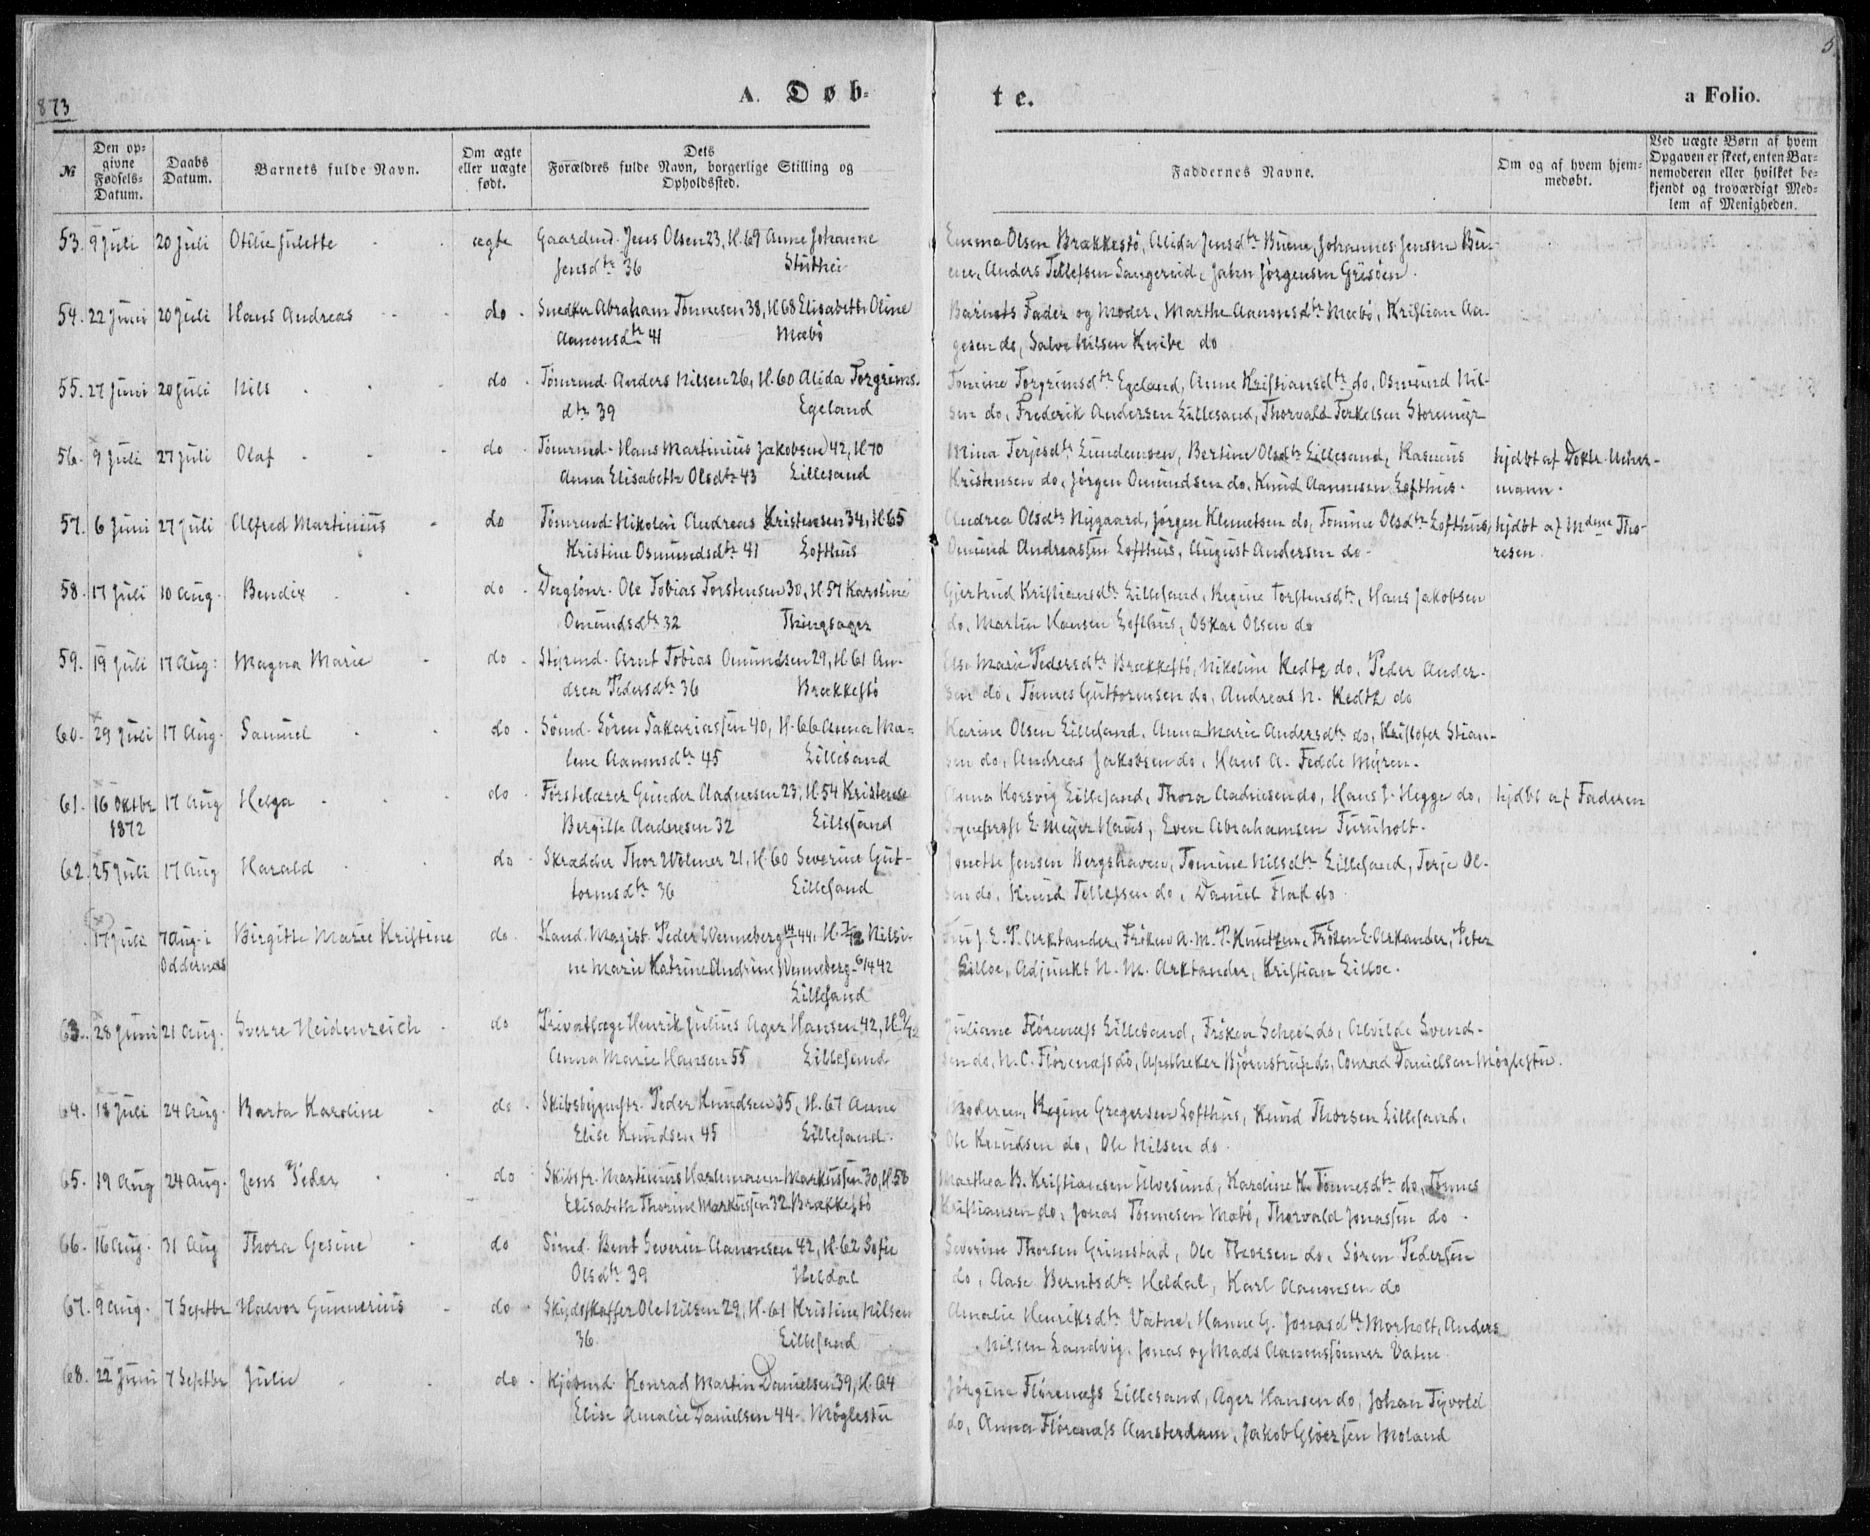 873
A. Døb-
te.
a Folio.
5
№
Den op-
givne
Fødsels-
Datum.
Daabs
Datum.
Barnets fulde Navn.
Om ægte
eller uægte
født.
Dets
Forældres fulde Navn, borgerlige Stilling og
Opholdssted.
Faddernes Navne.
Om og af hvem hjem-
medøbt.
Ved uægte Børn af hvem
Opgaven er skeet, enten Bar-
nemoderen eller hvilket be-
kjendt og troværdigt Med-
lem af Menigheden.
53. 9 Juli 20 Juli Otilie Julette ægte Gaardmd. Jens Olsen 23, H. 69 Anne Johanne Emma Olsen Brækkestö, Alida Jensdtr Buene, Johannes Jensen Bu-
Jensdtr 36 Stuthei ene, Anders Tellefsen Sangereid, Jahn Jørgensen Grisöen.
54. 22 Juni 20 Juli Hans Andreas do. Snedker Abraham Tönnesen 38, H 68 Elisabeth Oline Barnets Fader og Moder, Marthe Aanonsdtr Mæbö, Kristian Aa-
Aanonsdtr 41 Mæbö gesen do, Salve Nilsen Kvibe do
55. 27 Juni 20 Juli Nils do Tömrmd. Anders Nilsen 26, H. 60 Alida Torgrims- Tomine Torgrimsdtr Egeland, Anne Kristiansdtr do, Osmund Nil-
dtr 39 Egeland sen do, Frederik Andersen Lillesand, Thorvald Terkelsen Storemyr
56. 9 Juli 27 Juli Olaf do Tömrmd. Hans Martinius Jakobsen 42, H 70 Mina Terjesdtr Lundemoen, Bertine Olsdtr Lillesand, Rasmus hjdbt af Doktr. Ucher-
Anna Elisabeth Olsdtr 43 Lillesand Kristensen do, Jörgen Omundsen do, Knud Aanonsen Lofthus. mann.
57. 6 Juni 27 Juli Alfred Martinius do Tömrmd. Nikolai Andreas Kristensen 34, H 65 Andrea Olsdtr Nygaard, Jørgen Klemetsen do, Tomine Olsdtr Lofthus, hjdbt af Mdme Tho-
Kristine Osmundsdtr 41 Lofthus Omund Andreassen Lofthus, August Andersen do. resen.
58. 17 Juli 10 Aug. Bendix do Daglönr. Ole Tobias Torstensen 30, H. 57 Karoline Gjertrud Kristiansdtr Lillesand, Regine Torstensdtr, Hans Jakobsen
Omundsdtr 32 Thingsager do, Martin Hansen Lofthus, Oskar Olsen do
59. 19 Juli 17 Aug: Magna Marie do. Styrmd. Arnt Tobias Omundsen 29, H. 61 An- Else Marie Pedersdtr Brækkestö, Nikoline Kedtz do, Peder Ander-
drea Pedersdtr 36 Brækkestö sen do, Tönnes Guttormsen do, Andreas N. Kedtz do
60. 29 Juli 17 Aug. Samuel do. Sömd. Sören Sakariassen 40, H. 66 Anna Ma- Karine Olsen Lillesand, Anna Marie Andersdtr do, Kristofer Stian-
lene Aanonsdtr 45 Lillesand sen do, Andreas Jakobsen do, Hans A. Fedde Myren.
61. 16 Oktbr 17 Aug Helga do. Förstelærer Gunder Aadnesen 23, H. 54 Kristense Anna Korsvig Lillesand, Thora Aadnesen do, Hans J. Hegge do, hjdbt af Faderen
1872 Bergitte Aadnesen 32 Lillesand Sognepræst E. Meyer Haus, Even Abrahamsen Furuholt.
62. 25 Juli 17 Aug Harald do. Skrædder Thor Wolmer 21, H. 60 Severine Gut- Jonette Jensen Bergshaven, Tomine Nilsdtr Lillesand, Terje Ol-
tormsdtr 36 Lillesand sen do, Knud Tellefsen do, Daniel Flak do
17 Juli 7 Aug. i Birgitte Marie Kristine do. Kand. Magist. Peder Wenneberg 44, Nilsi- Fru J. E. P. Arktander, Fröken A. M. P. Knutzen, Fröken E. Arktander, Peter
Oddernes ne Marie Katrine Andrine Wenneberg 42 Lilloe, Adjunkt N. M. Arktander, Kristian Lilloe.
Lillesand
63. 28 Juni 21 Aug. Sverre Heidenreich do Privatlæge Henrik Julius Ager Hansen 42, H. 9/72 Juliane Flörenæss Lillesand, Fröken Scheel do, Alvilde Svend-
Anna Marie Hansen 55 Lillesand sen do, N. C. Flörenæss do, Apotheker Bjørnstrup do, Conrad Danielsen Möglestu.
64. 18 Juli 24 Aug. Barta Karoline do. Skibsbygmstr. Peder Knudsen 35, H. 67 Anne Moderen, Regine Gregersen Lofthus, Knud Thorsen Lillesand,
Elise Knudsen 45 Lillesand. Ole Knudsen do, Ole Nilsen do.
65. 19 Aug 24 Aug. Jens Peder do Skibsfr. Martinius Hartemann Markussen 30, H. 58 Marthea B. Kristiansen Ulvesund, Karoline K. Tönnesdtr do, Tönnes
Elisabeth Thorine Markussen 32 Brækkestö Kristiansen do, Jonas Tönnesen Mæbö, Thorvald Jonassen do.
66. 16 Aug. 31 Aug Thora Gesine do Sömd. Bent Severin Aanonsen 42, H. 62 Sofie Severine Thorsen Grimstad, Ole Thorsen do, Sören Pedersen
Olsdtr 39 Heldal do, Aase Berntsdtr Heldal, Karl Aanonsen do
67. 9 Aug. 7 Septbr Halvor Gunnerius do. Skydsskaffer Ole Nilsen 29, H. 61 Kristine Nilsen Amalie Henriksdtr Vatne, Hanne G. Jonasdtr Morholt, Anders
36 Lillesand Nilsen Landvig, Jonas og Mads Aanonssönner Vatne
68. 22 Juni 7 Septbr Julie do. Kjöbmd. Konrad Martin Danielsen 39, H. 64 Jörgine Flörenæss Lillesand, Ager Hansen do, Johan Tyvold
Elise Amalie Danielsen 44 Möglestu do, Anna Flörenæss Amsterdam, Jakob Gloersen Moland